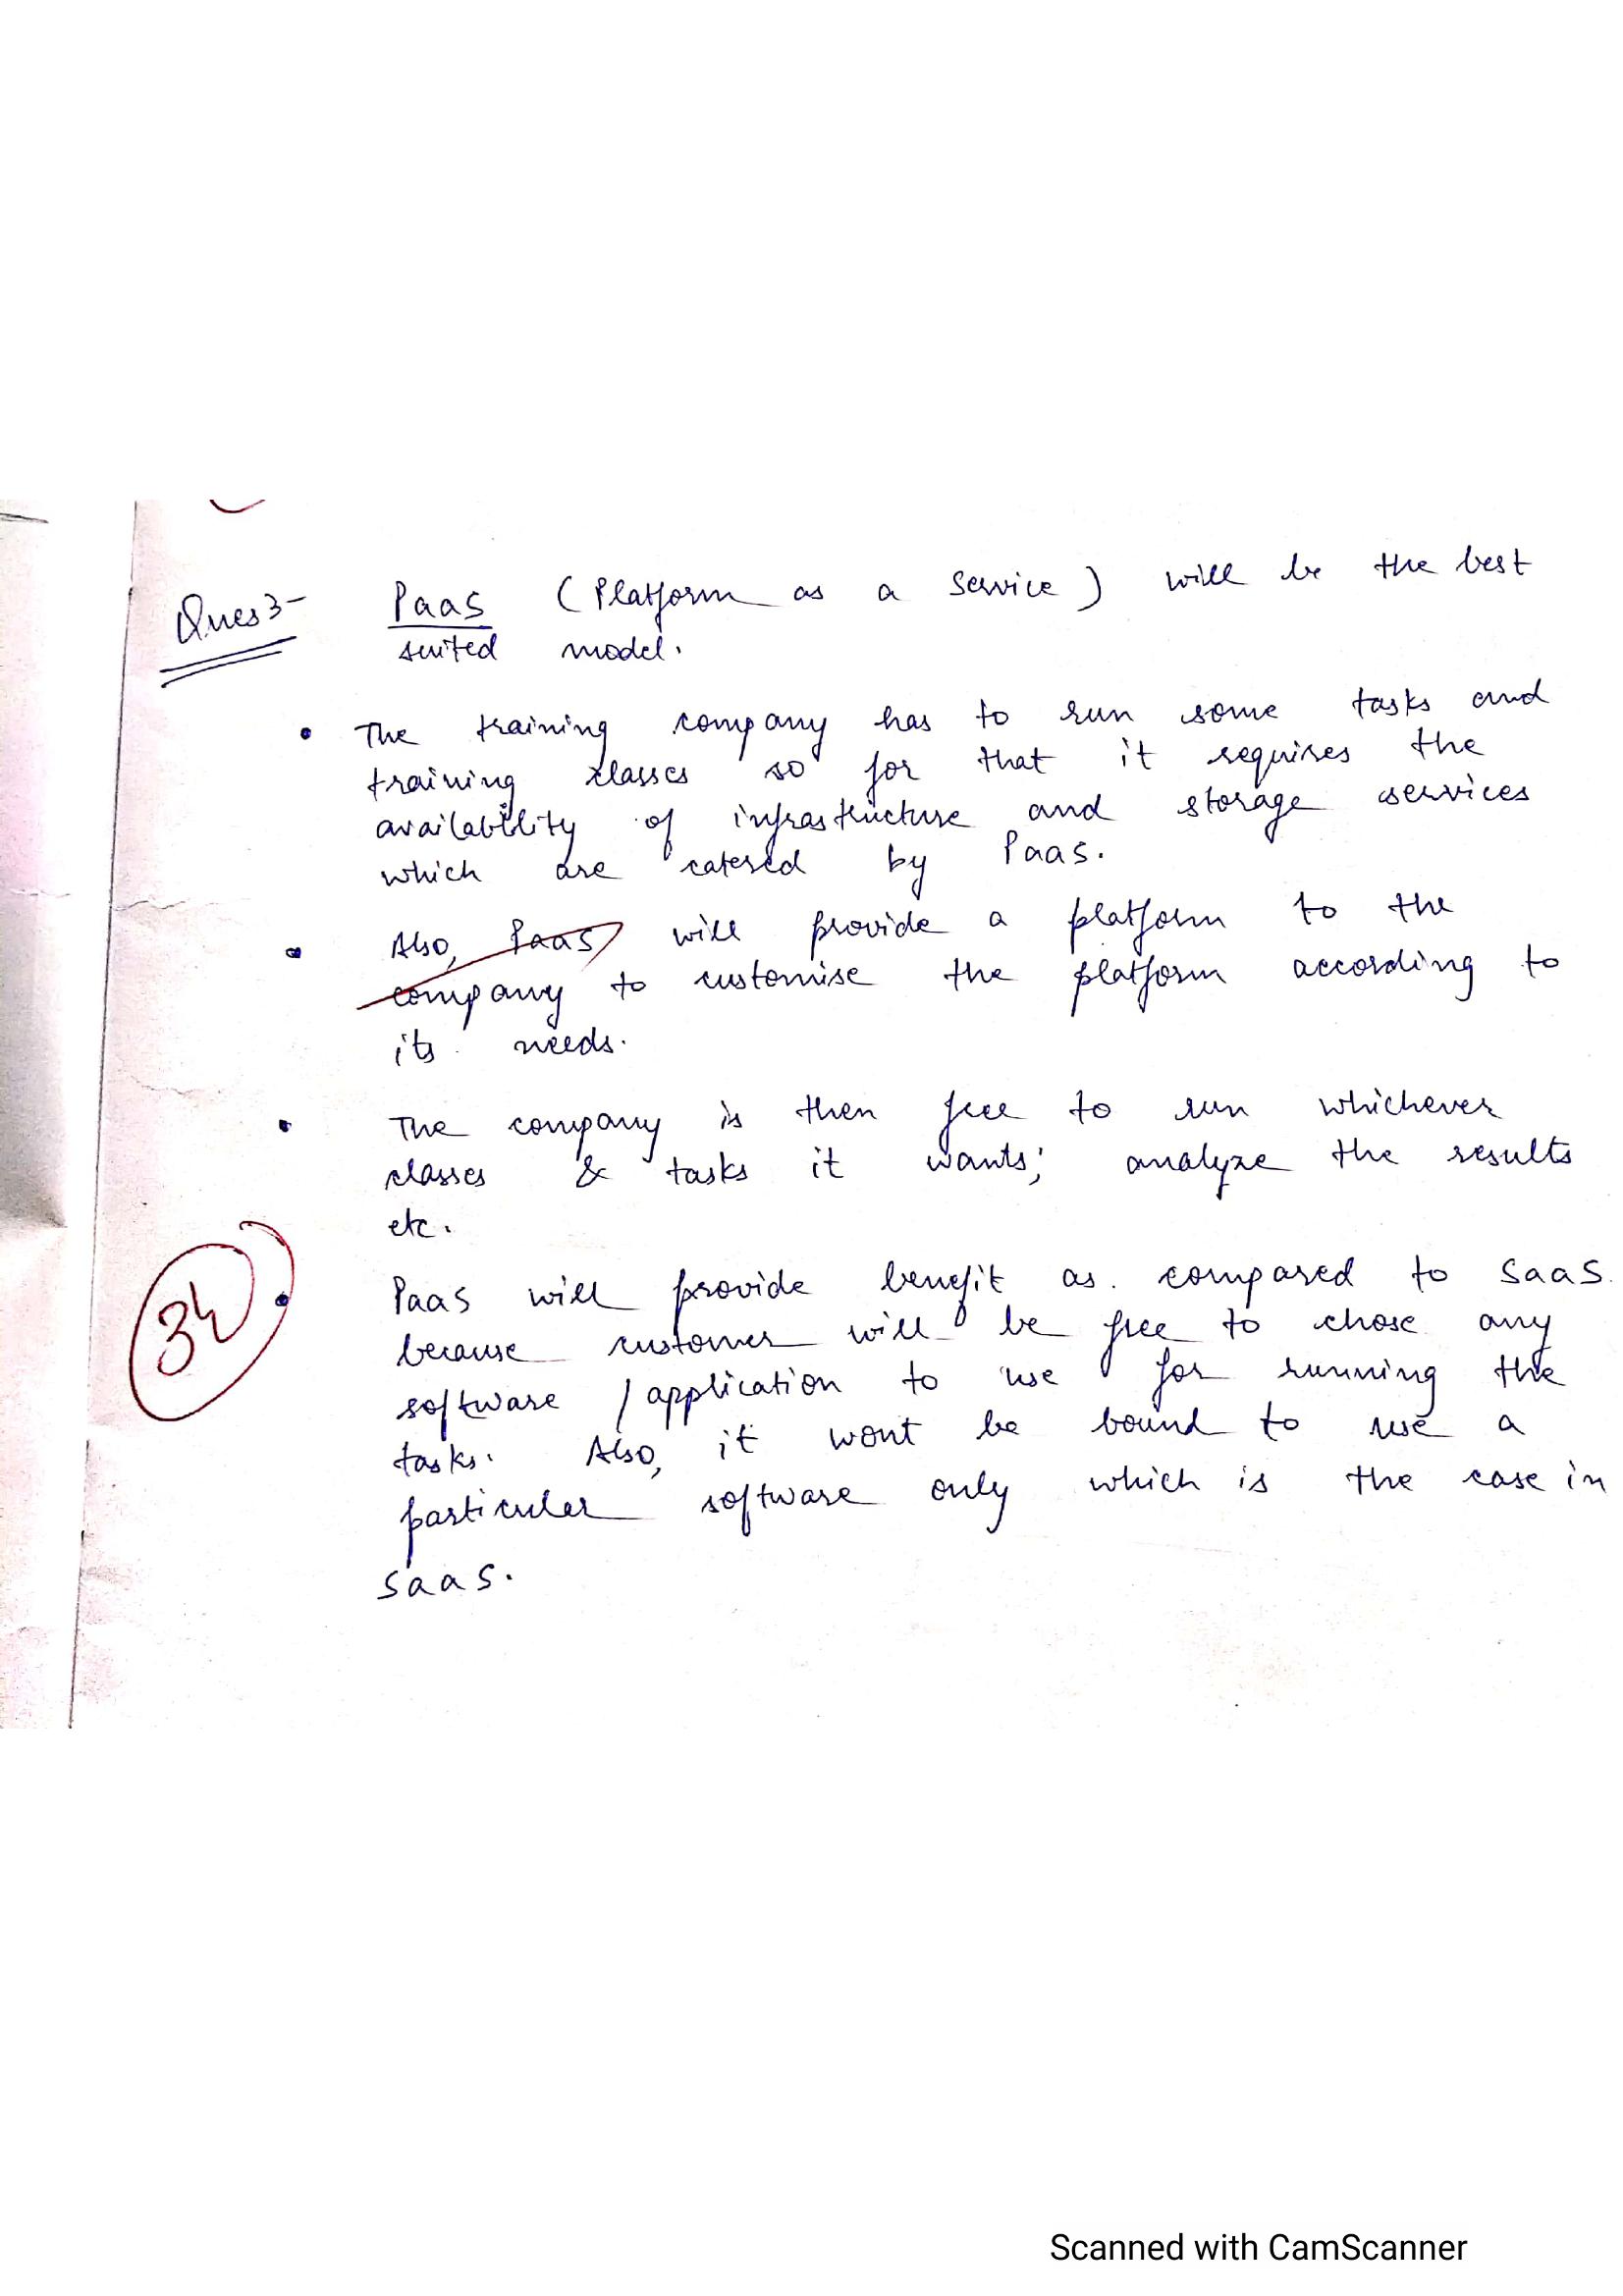 Ques 3- Paas (Platform as a Service) will be the best
suited model.
• The training company has to run some tasks and
training classes so for that it requires the
availability of infrastructure and storage services
which are catered by Paas.
• Also, Paas will provide a platform to the
company to customise the platform according to
its needs.
• The company is then free to run whichever
classes & tasks it wants; analyze the results
etc.
34
• Paas will provide benefit as compared to SaaS
because customer will be free to chose any
software / application to use for running the
tasks. Also, it wont be bound to use a
particuler software only which is the case in
SaaS.
Scanned with CamScanner